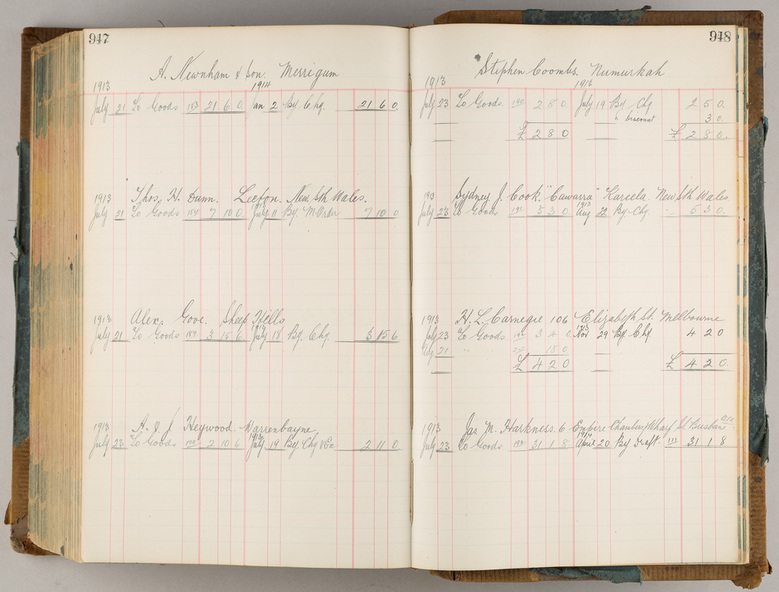 947
A. Newnham & Son. Merrigum
1913 1914
July 21 To Goods 21 6 0 Jan 2 By Chq. 21 6 0
1913 Thos. H. Dunn. Leeton. New Sth Wales.
July 21 To Goods 7 10 0 July 11 By M. Order 7 10 0
1913 Alex. Gove. Sheep Hills
July 21 To Goods 3 15 6 July 18 By Chq. 3 15 6
1913 A. & J. Heywood Warrenbayne
July 23 To Goods 2 10 6 July 19 By Chq 2 11 0
948
Stephen Coombs. Numurkah
1913
July 23 To Goods 2 8 0 July 19 By Chq 2 5 0
" Discount 3 0
£ 2 8 0 £ 2 8 0
1913 Sydney J. Cook "Cawarra" Kareela New Sth Wales
July 23 To Goods 5 3 0 1913 Aug 22 By Chq 5 3 0
1913 H. L. Carnegie 106 Elizabeth St. Melbourne
July 23 To Goods 3 4 0 1913 Nov 29 By Chq 4 2 0
21 18 0
£ 4 2 0 £ 4 2 0
1913 Jas. M. Harkness. 6 Empire Chambers Wharf St Brisbane
July 23 To Goods 31 1 8 April 20 By Draft. 31 1 8